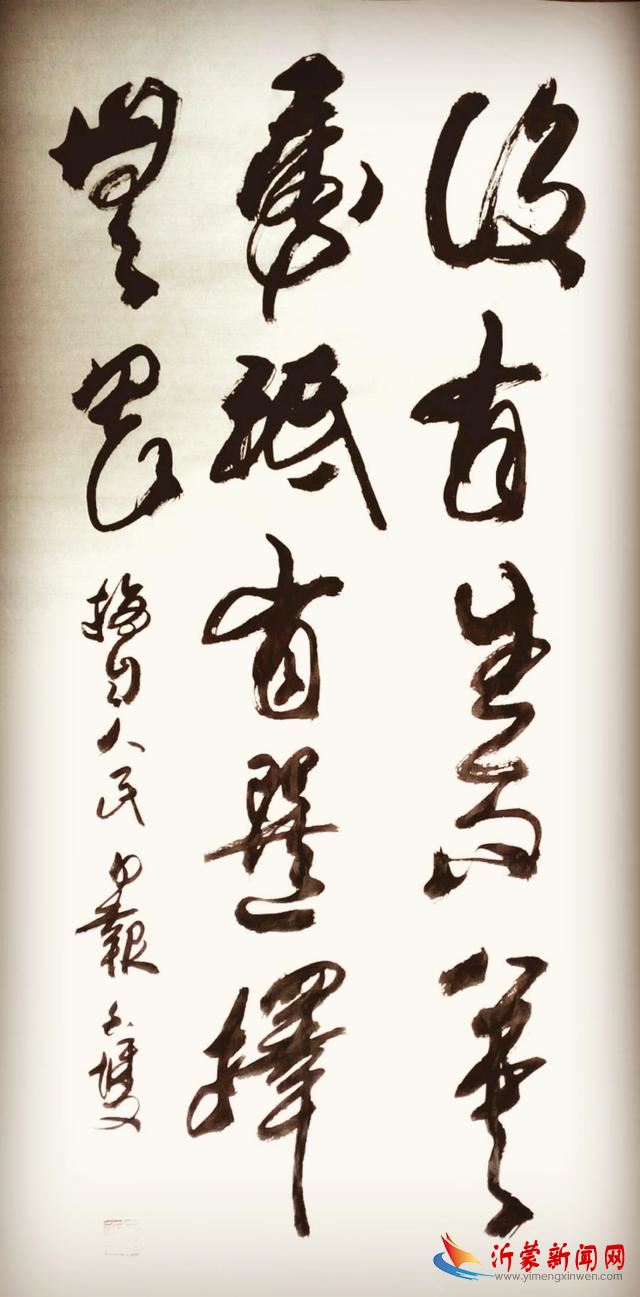 没有生而英
勇祗有選擇
無畏
摘自人民日報
沂蒙新闻网
www.yimengxinwen.com